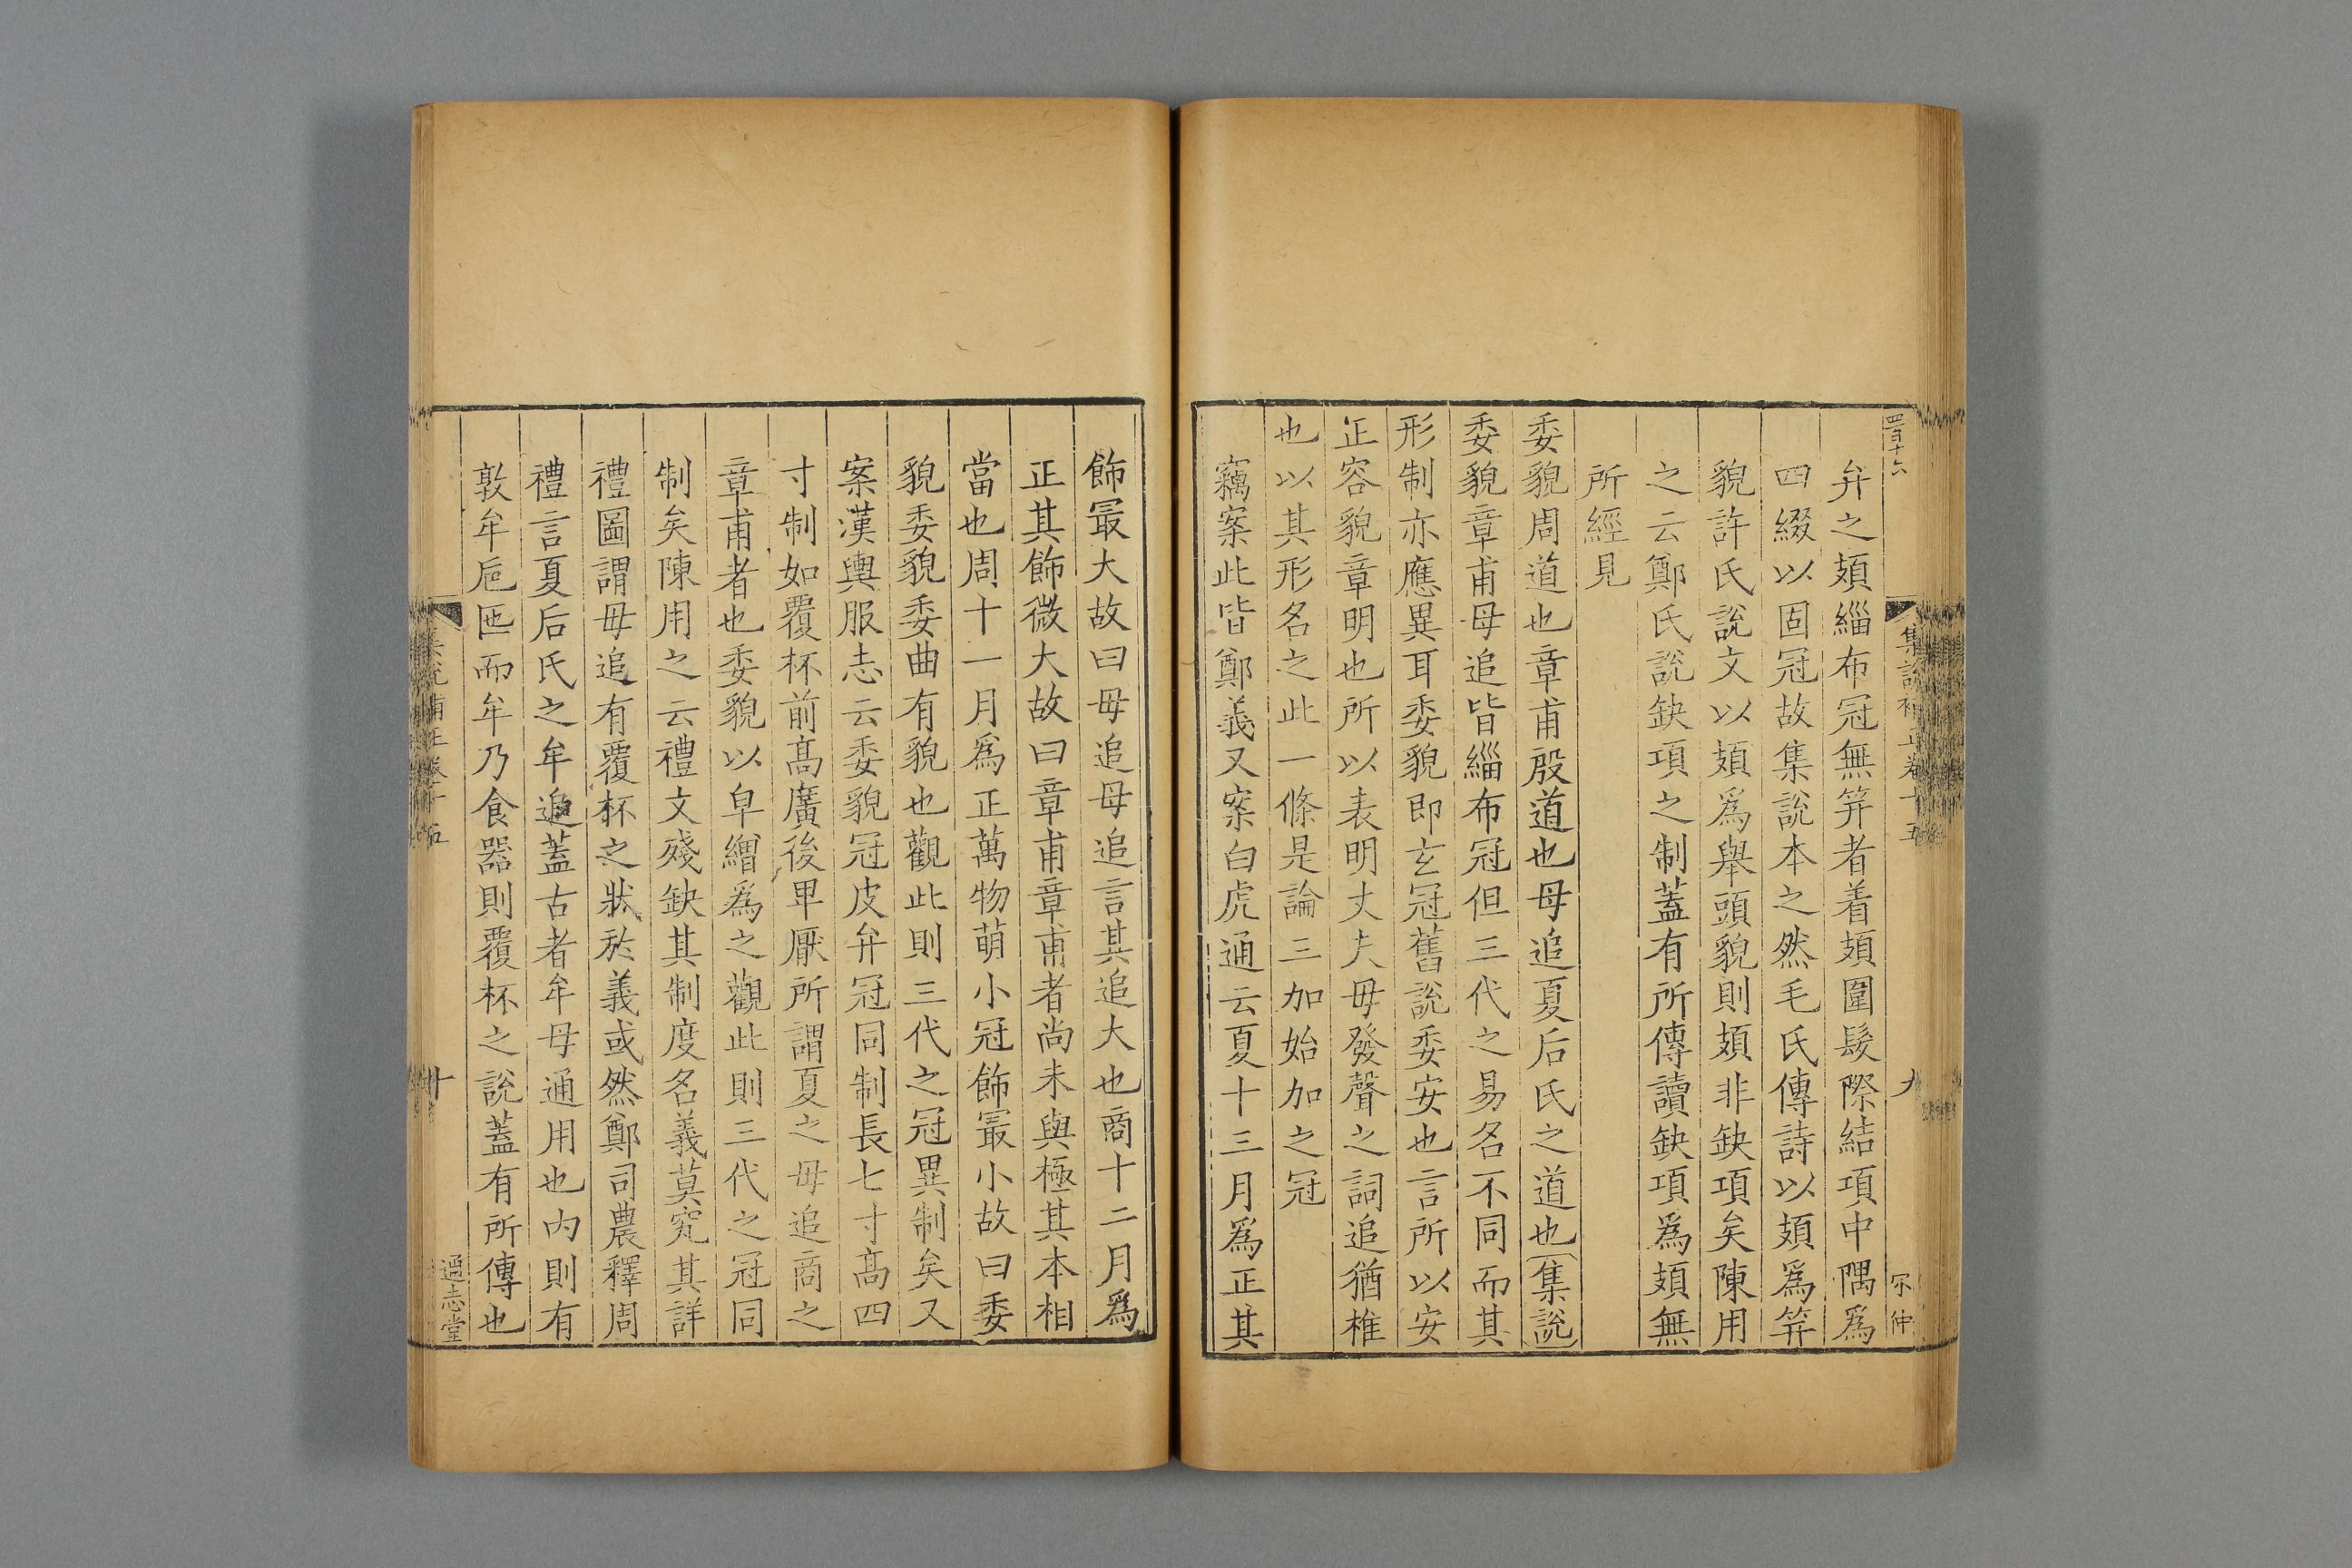 四百十六
集說補正卷十五
九
弁之頍緇布冠無笄者着頍圍髮際結項中隅爲
四綴以固冠故集說本之然毛氏傳詩以頍爲笄
貌許氏說文以頍爲舉頭貌則頍非缺項矣陳用
之云鄭氏說缺項之制蓋有所傳讀缺項爲頍無
所經見
委貌周道也章甫殷道也毋追夏后氏之道也集說
委貌章甫毋追皆緇布冠但三代之易名不同而其
形制亦應異耳委貌即玄冠舊說委安也言所以安
正容貌章明也所以表明丈夫毋發聲之詞追猶椎
也以其形名之此一條是論三加始加之冠
竊案此皆鄭義又案白虎通云夏十三月爲正其
飾最大故曰毋追毋追言其追大也商十二月爲
正其飾微大故曰章甫章甫者尚未與極其本相
當也周十一月爲正萬物萌小冠飾最小故曰委
貌委貌委曲有貌也觀此則三代之冠異制矣又
案漢輿服志云委貌冠皮弁冠同制長七寸高四
寸制如覆杯前高廣後卑厭所謂夏之毋追商之
章甫者也委貌以皁繒爲之觀此則三代之冠同
制矣陳用之云禮文殘缺其制度名義莫究其詳
禮圖謂毋追有覆杯之狀於義或然鄭司農釋周
禮言夏后氏之牟追蓋古者牟毋通用也內則有
敦牟卮匜而牟乃食器則覆杯之說蓋有所傳也
十
通志堂